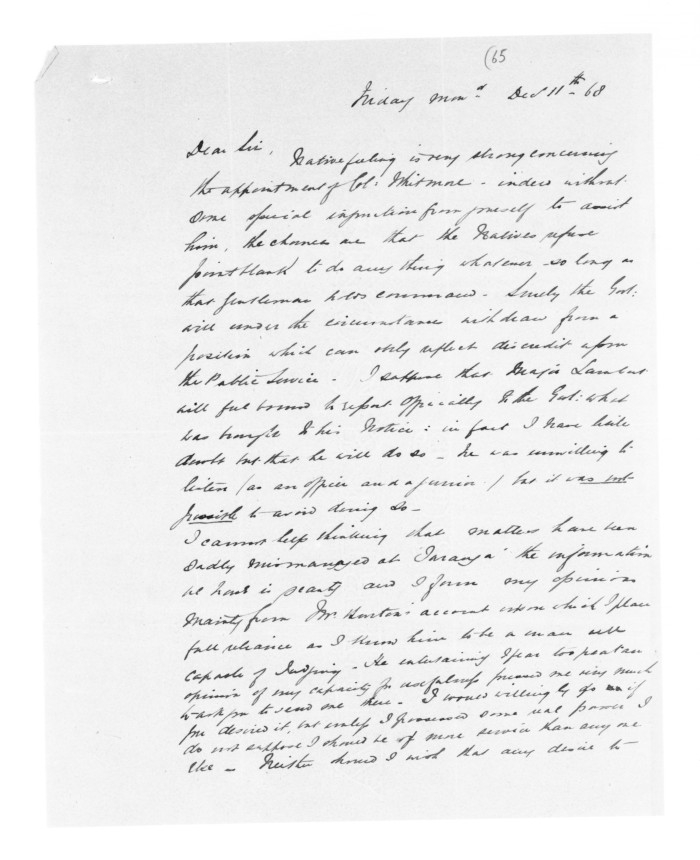 (65
Friday morng. Decr 11th 68
Dear Sir,
Native feeling is very strong concerning
the appointment of Col: Whitmore - indeed without
some special injunction from yourself to assist
him, the chances are that the Natives refuse
point blank to do any thing whatever - so long as
that Gentleman is in command - Surely the Govt:
will under the circumstance withdraw from a
position which can only reflect discredit upon
the Public Service - I suppose that Major Lambert
will feel bound to report officially to the Govt: what
was brought to his notice: in fact I have little
doubt but that he will do so - he was unwilling to
listen (as an officer and a junior) but it was not
possible to avoid doing so -
I cannot help thinking that matters have been
sadly mismanaged at Turanga the information
we have is scanty and I form my opinions
mainly from Mr. account upon which I place
full reliance as I know him to be a man well
capable of Judging - He entertaining I fear too great an
opinion of my capacity for usefulness pressed me very much
to ask you to send me there - I would willingly go if
you desired it, but unless I possessed some real power I
do not suppose I should be of more service than any one
else - Neither should I wish that any desire to